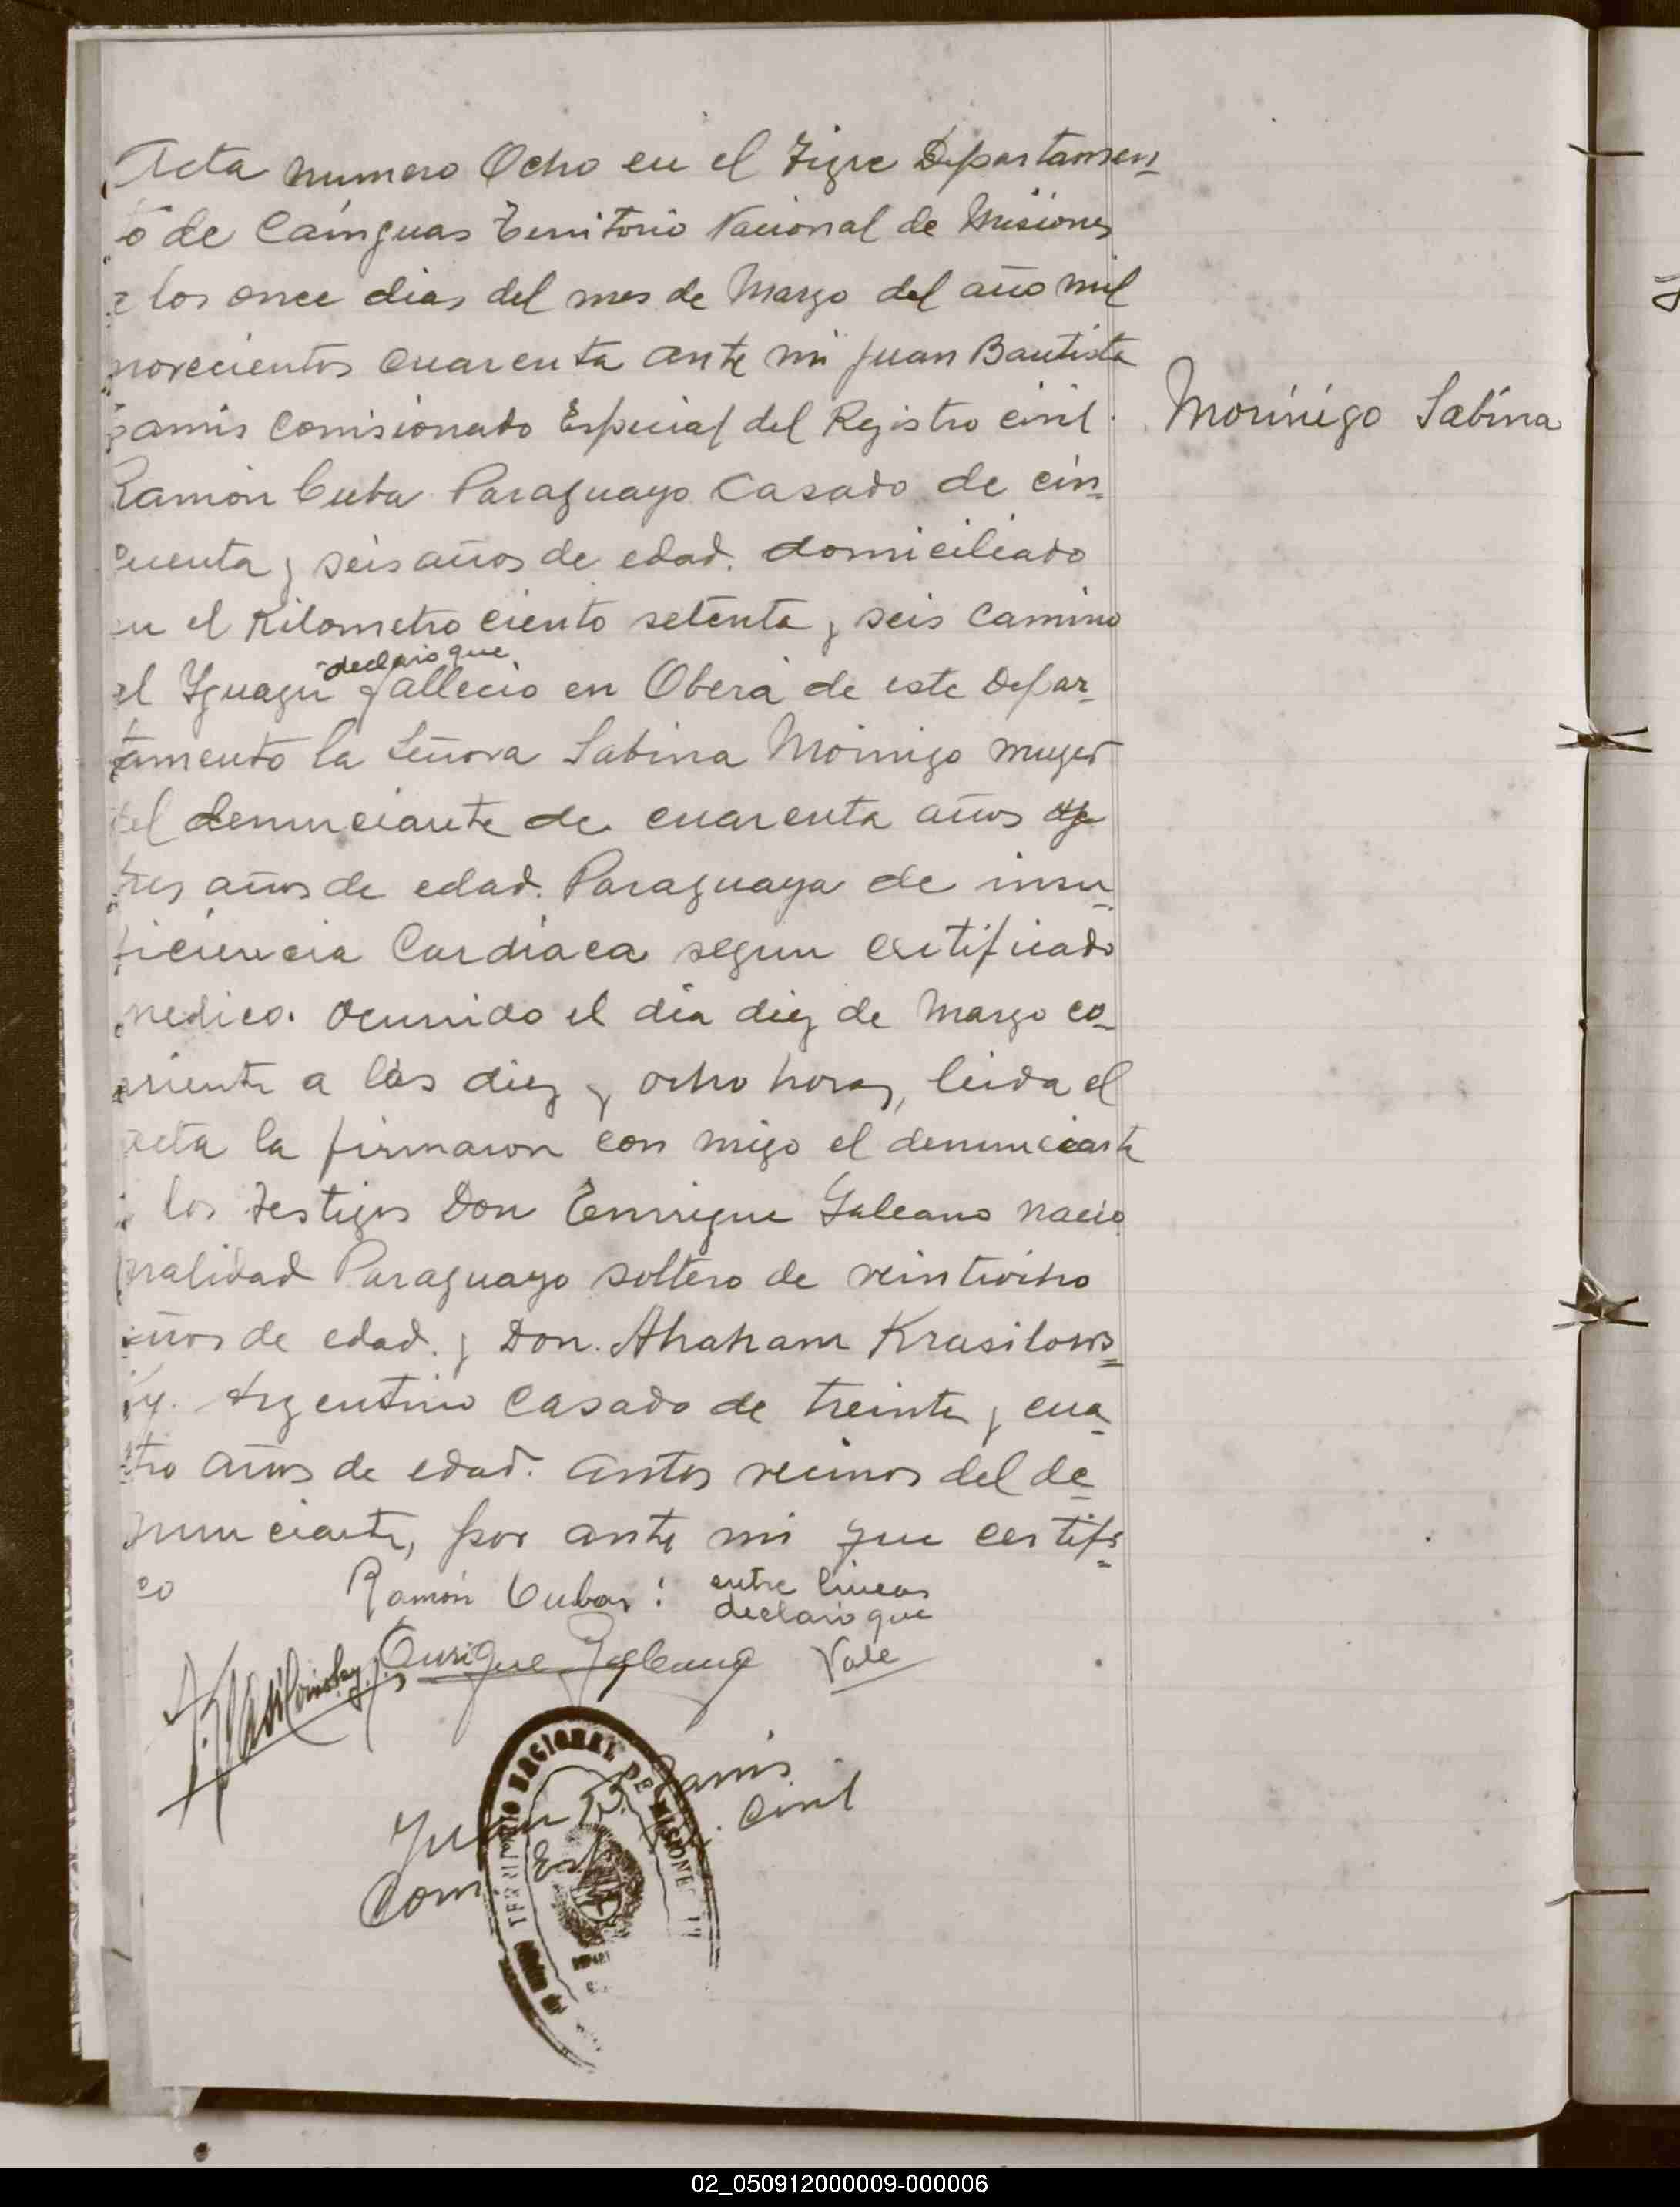 Acta numero Ocho en el Tigre Departamen-
to de Caínguas Territorio Nacional de Misiones
a los once dias del mes de Marzo del año mil
novecientos cuarenta ante mi Juan Bautista
Gamis Comisionado Especial del Registro civil.
Morínigo Sabína
Ramón Cuba Paraguayo Casado de cin-
cuenta y seis años de edad. domiciliado
en el Kilometro ciento setenta y seis camino
declaro que
el Yguazu fallecio en Oberá de este Depar-
tamento la Señora Sabina Moinigo muger
del denunciante de cuarenta años
tres años de edad. Paraguaya de insu-
ficiencia Cardíaca segun certificado
medico. Ocurrido el día diez de Marzo co-
rriente a las diez y ocho horas, leida el
acta la firmaron con migo el denunciante
los testigos Don Enrrique Galeano nacio
nalidad Paraguayo soltero de veintiocho
años de edad. y Don. Ahaham Krasilows-
ky. Argentino Casado de treinta y cua-
tro años de edad. antos vecinos del de-
nunciante, por ante mi que certifi-
co
Ramón Cubas:
entre lineas
declaro que
Vale
Enrique Galeano
A. Krasilowsky
Juan B. Gamis
Com. Esp. civil
TERRITORIO NACIONAL DE MISIONES
02_050912000009-000006